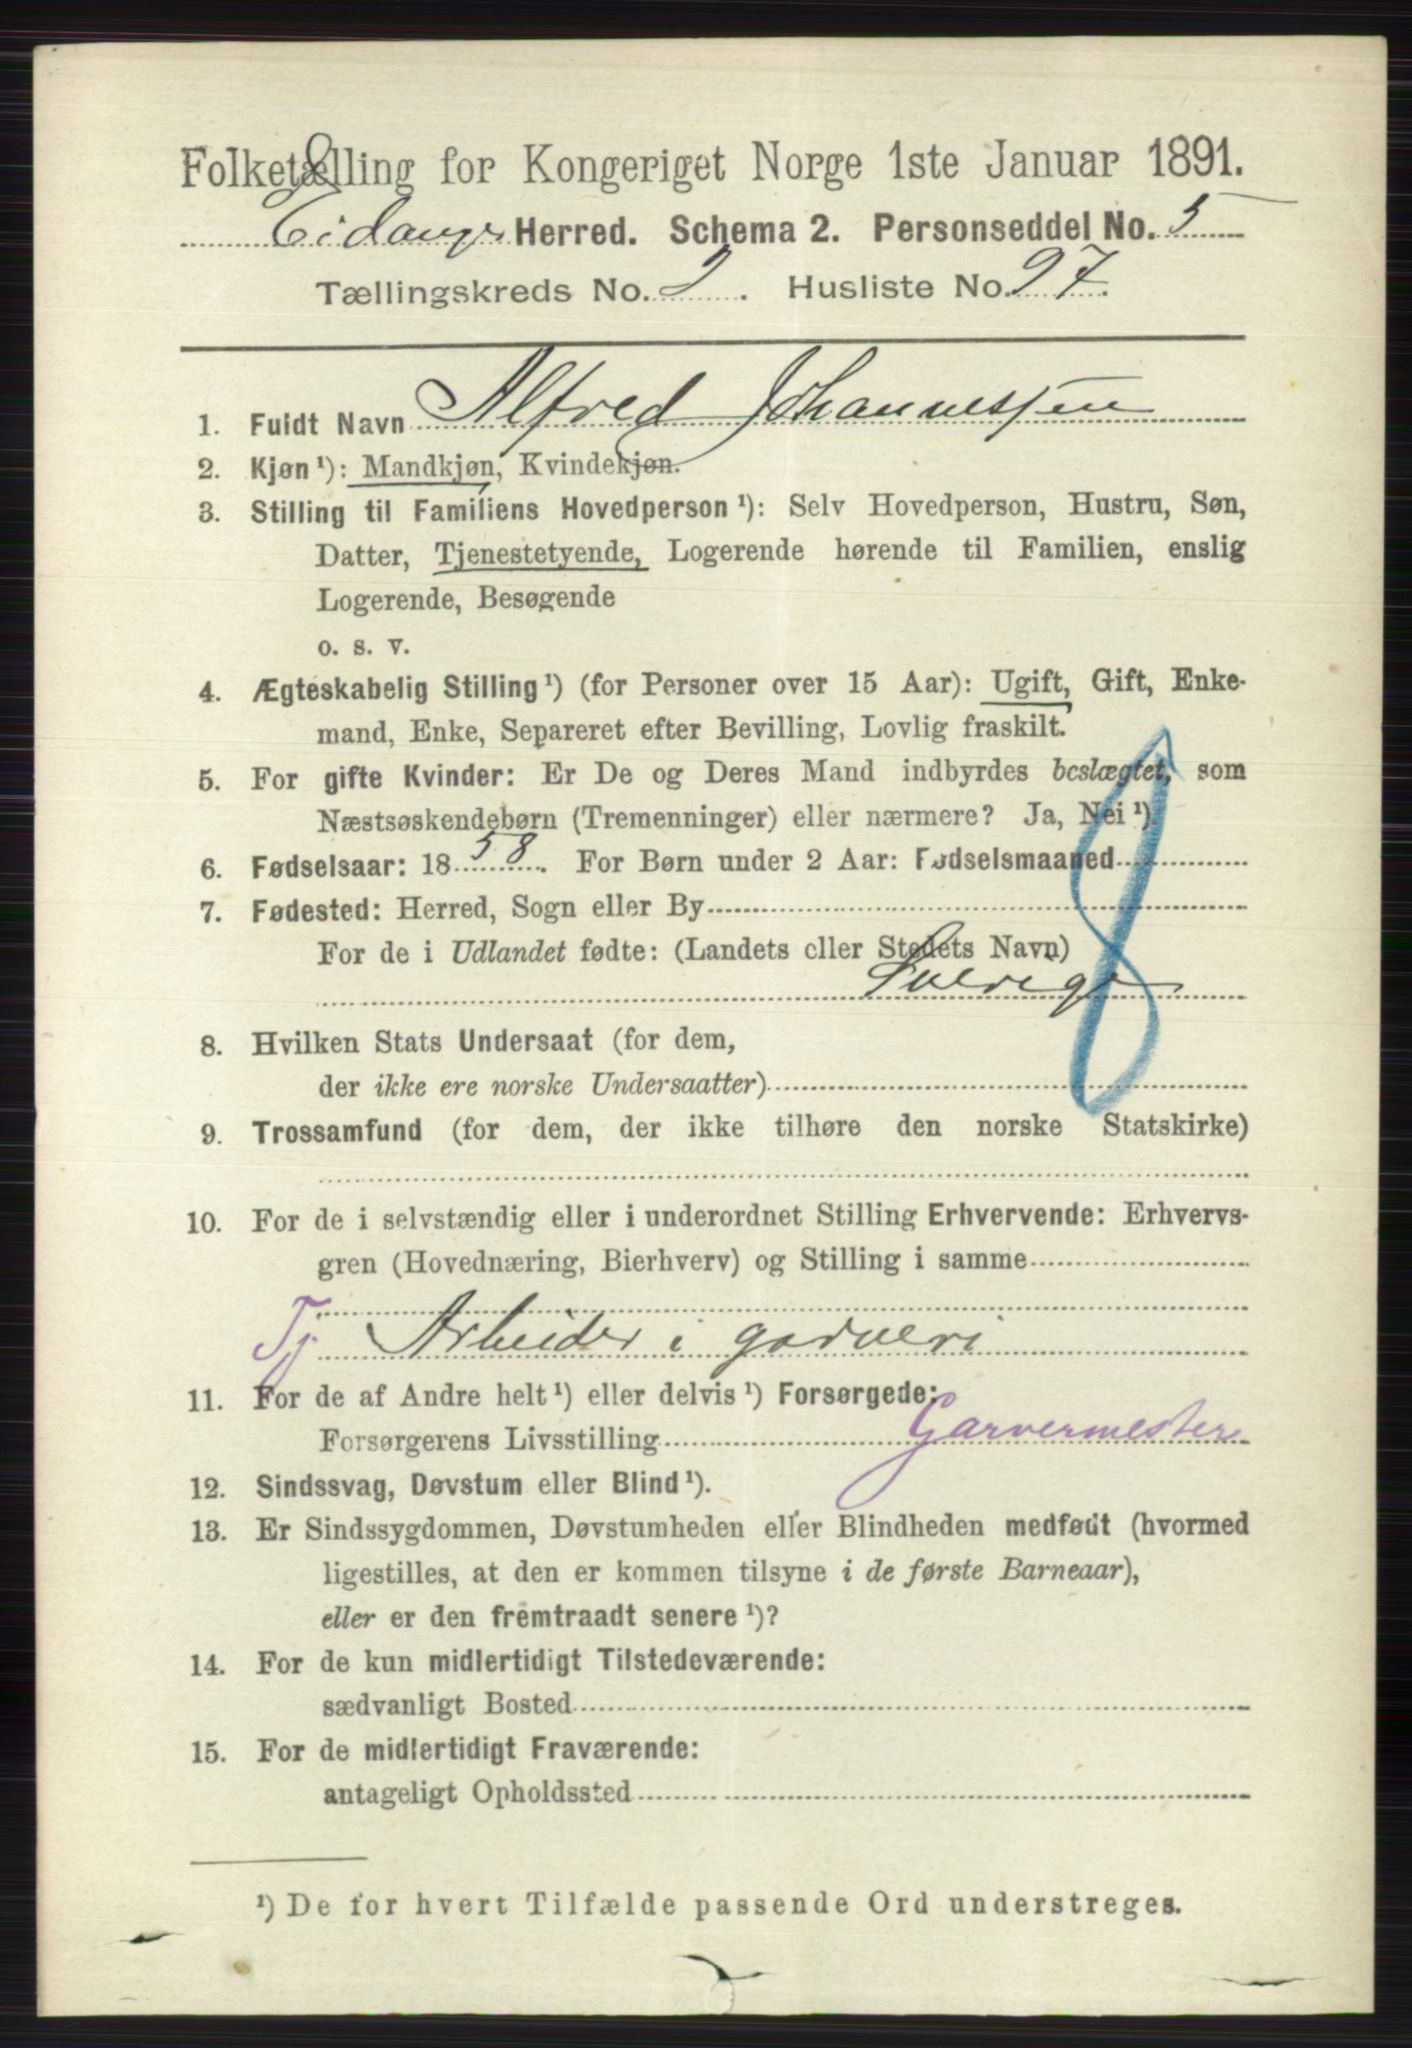 Folketælling for Kongeriget Norge 1ste Januar 1891.
Eidanger Herred. Schema 2. Personseddel No. 5
Tællingskreds No. 2. Husliste No. 27.
1. Fuldt Navn Alfred Johannessen
2. Kjøn ¹): Mandkjøn, Kvindekjøn.
3. Stilling til Familiens Hovedperson ¹): Selv Hovedperson, Hustru, Søn,
Datter, Tjenestetyende, Logerende hørende til Familien, enslig
Logerende, Besøgende
o. s. v.
4. Ægteskabelig Stilling ¹) (for Personer over 15 Aar): Ugift, Gift, Enke-
mand, Enke, Separeret efter Bevilling, Lovlig fraskilt.
5. For gifte Kvinder: Er De og Deres Mand indbyrdes beslægtet, som
Næstsøskendebørn (Tremenninger) eller nærmere? Ja, Nei ¹)
6. Fødselsaar: 1858. For Børn under 2 Aar: Fødselsmaaned
7. Fødested: Herred, Sogn eller By
For de i Udlandet fødte: (Landets eller Stedets Navn)
Sverige
8. Hvilken Stats Undersaat (for dem,
der ikke ere norske Undersaatter)
9. Trossamfund (for dem, der ikke tilhøre den norske Statskirke)
10. For de i selvstændig eller i underordnet Stilling Erhvervende: Erhvervs-
gren (Hovednæring, Bierhverv) og Stilling i samme
Tj Arbeider i garveri
11. For de af Andre helt ¹) eller delvis ¹) Forsørgede:
Forsørgerens Livsstilling Garvermester
12. Sindssvag, Døvstum eller Blind ¹).
13. Er Sindssygdommen, Døvstumheden eller Blindheden medfødt (hvormed
ligestilles, at den er kommen tilsyne i de første Barneaar),
eller er den fremtraadt senere ¹)?
14. For de kun midlertidigt Tilstedeværende:
sædvanligt Bosted
15. For de midlertidigt Fraværende:
antageligt Opholdssted
¹) De for hvert Tilfælde passende Ord understreges.